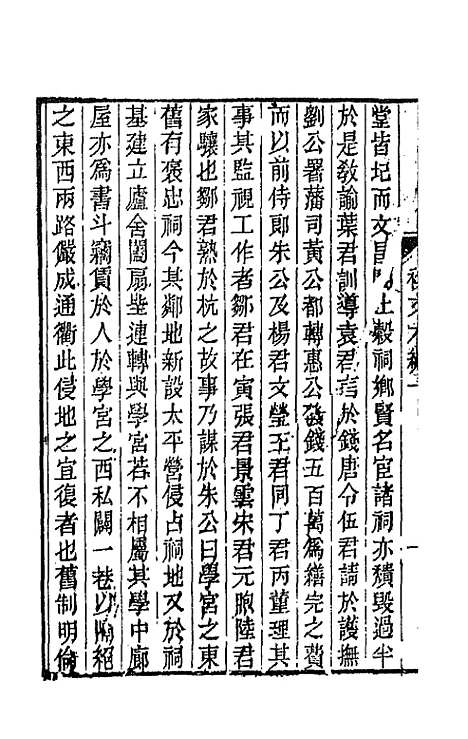 堂皆圮而文昌閣土穀祠鄉賢名宦諸祠亦穨毀過半
於是敎諭葉君訓導袁君言於錢唐令伍君請於護撫
劉公署藩司黃公都轉惠公發錢五百萬爲繕完之費
而以前侍郎朱公及楊君文瑩王君同丁君丙董理其
事其監視工作者鄒君在寅張君景雲宋君元煦陸君
家驤也鄒君熟於杭之故事乃謀於朱公曰學宮之東
舊有褒忠祠今其鄰地新設太平營侵占祠地又於祠
基建立廬舍闔扇㘴連轉與學宮若不相屬其學中廊
屋亦爲書斗竊賃於人於學宮之西私闢一巷以隔絕
之東西兩路儼成通衢此侵地之宜復者也舊制明倫